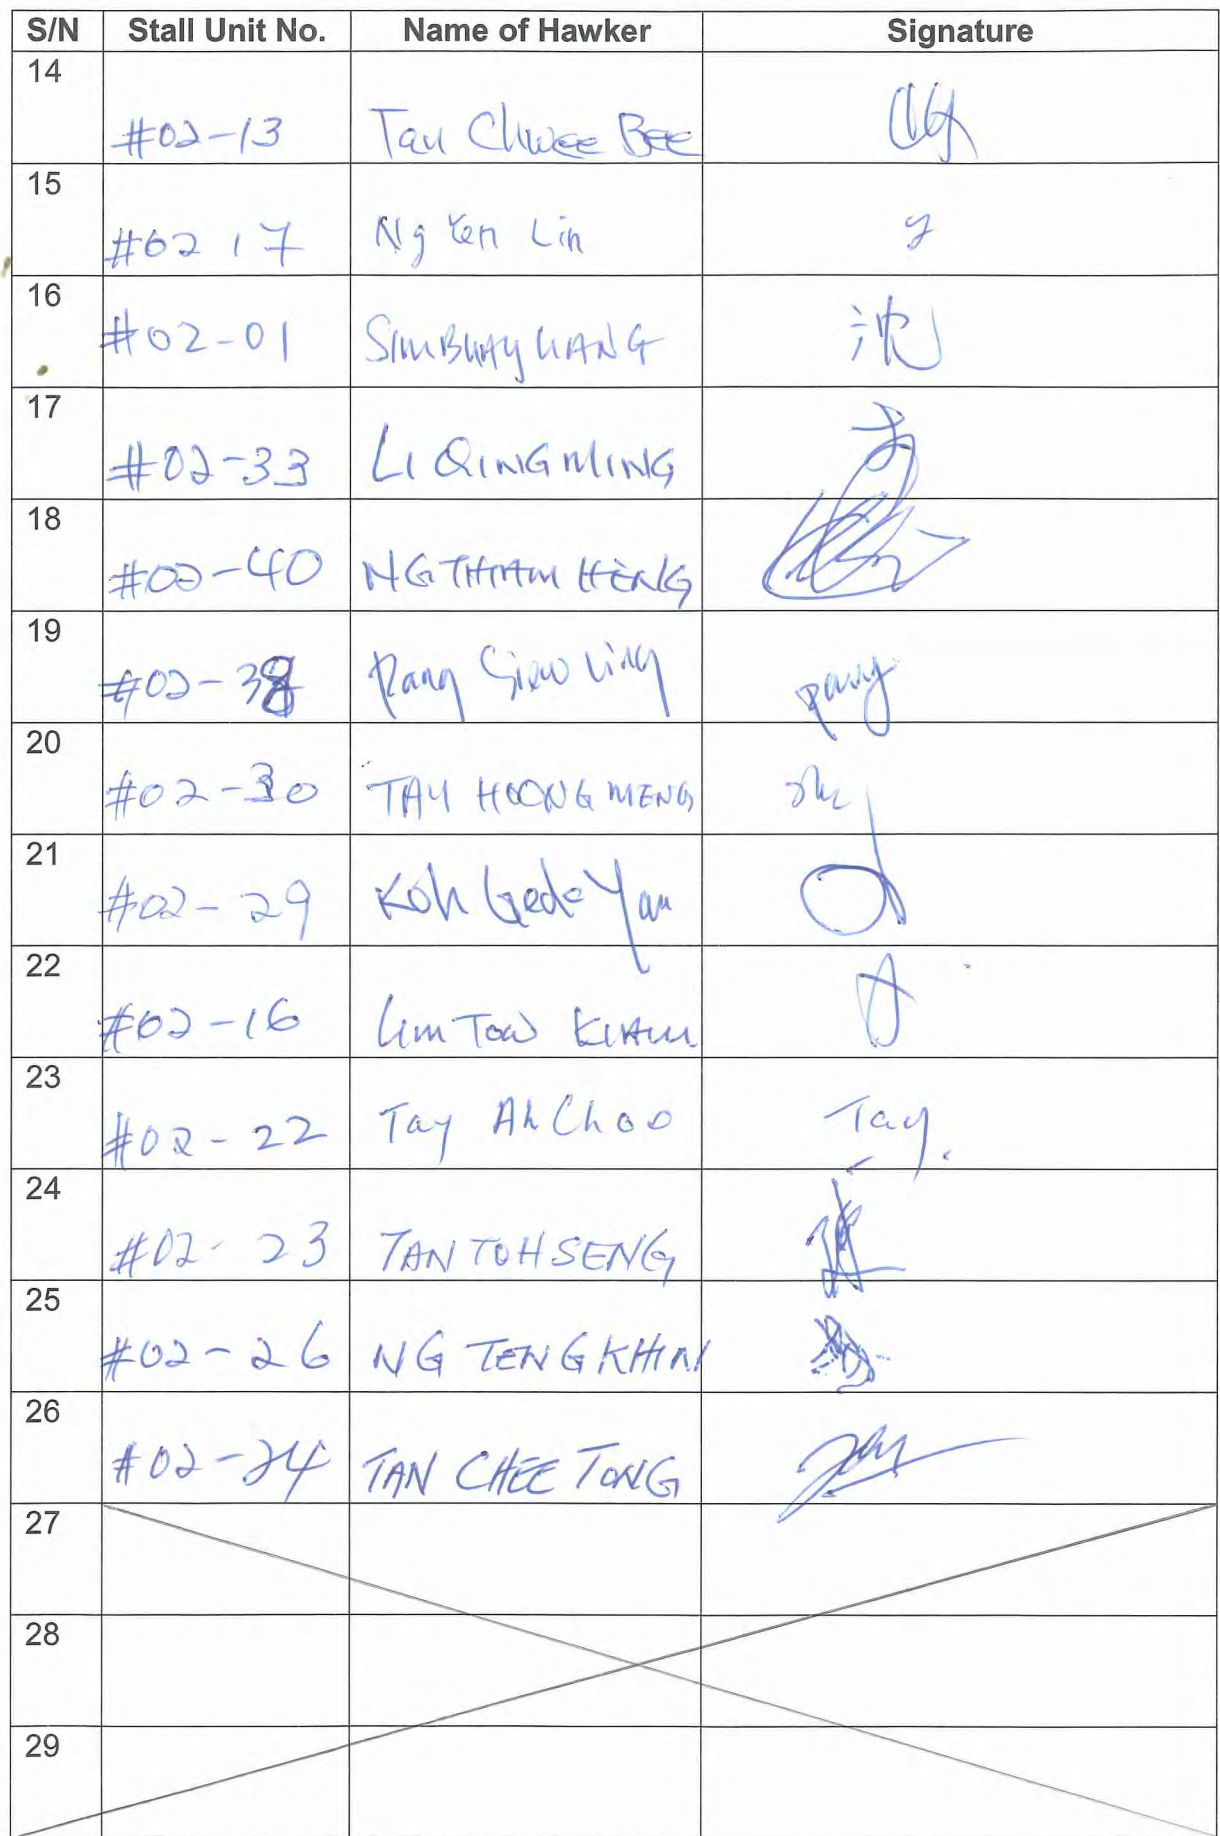 S/N Stall Unit No. Name of Hawker Signature
14 #02-13 Tan Chwee Bee
15 #02 17 Ng Yen Lin y
16 #02-01 SIM BUAY LIANG 沈
17 #02-33 LI QING MING
18 #02-40 NG THIAM HENG
19 #02-38 Pang Siew Ling pang
20 #02-30 TAY HOONG MENG
21 #02-29 Koh Yan
22 #02-16 Lim Tow KIAM
23 #02-22 Tay Ah Choo Tay.
24 #02-23 TAN TOH SENG
25 #02-26 NG TENG KHIN
26 #02-24 TAN CHEE TONG
27
28
29